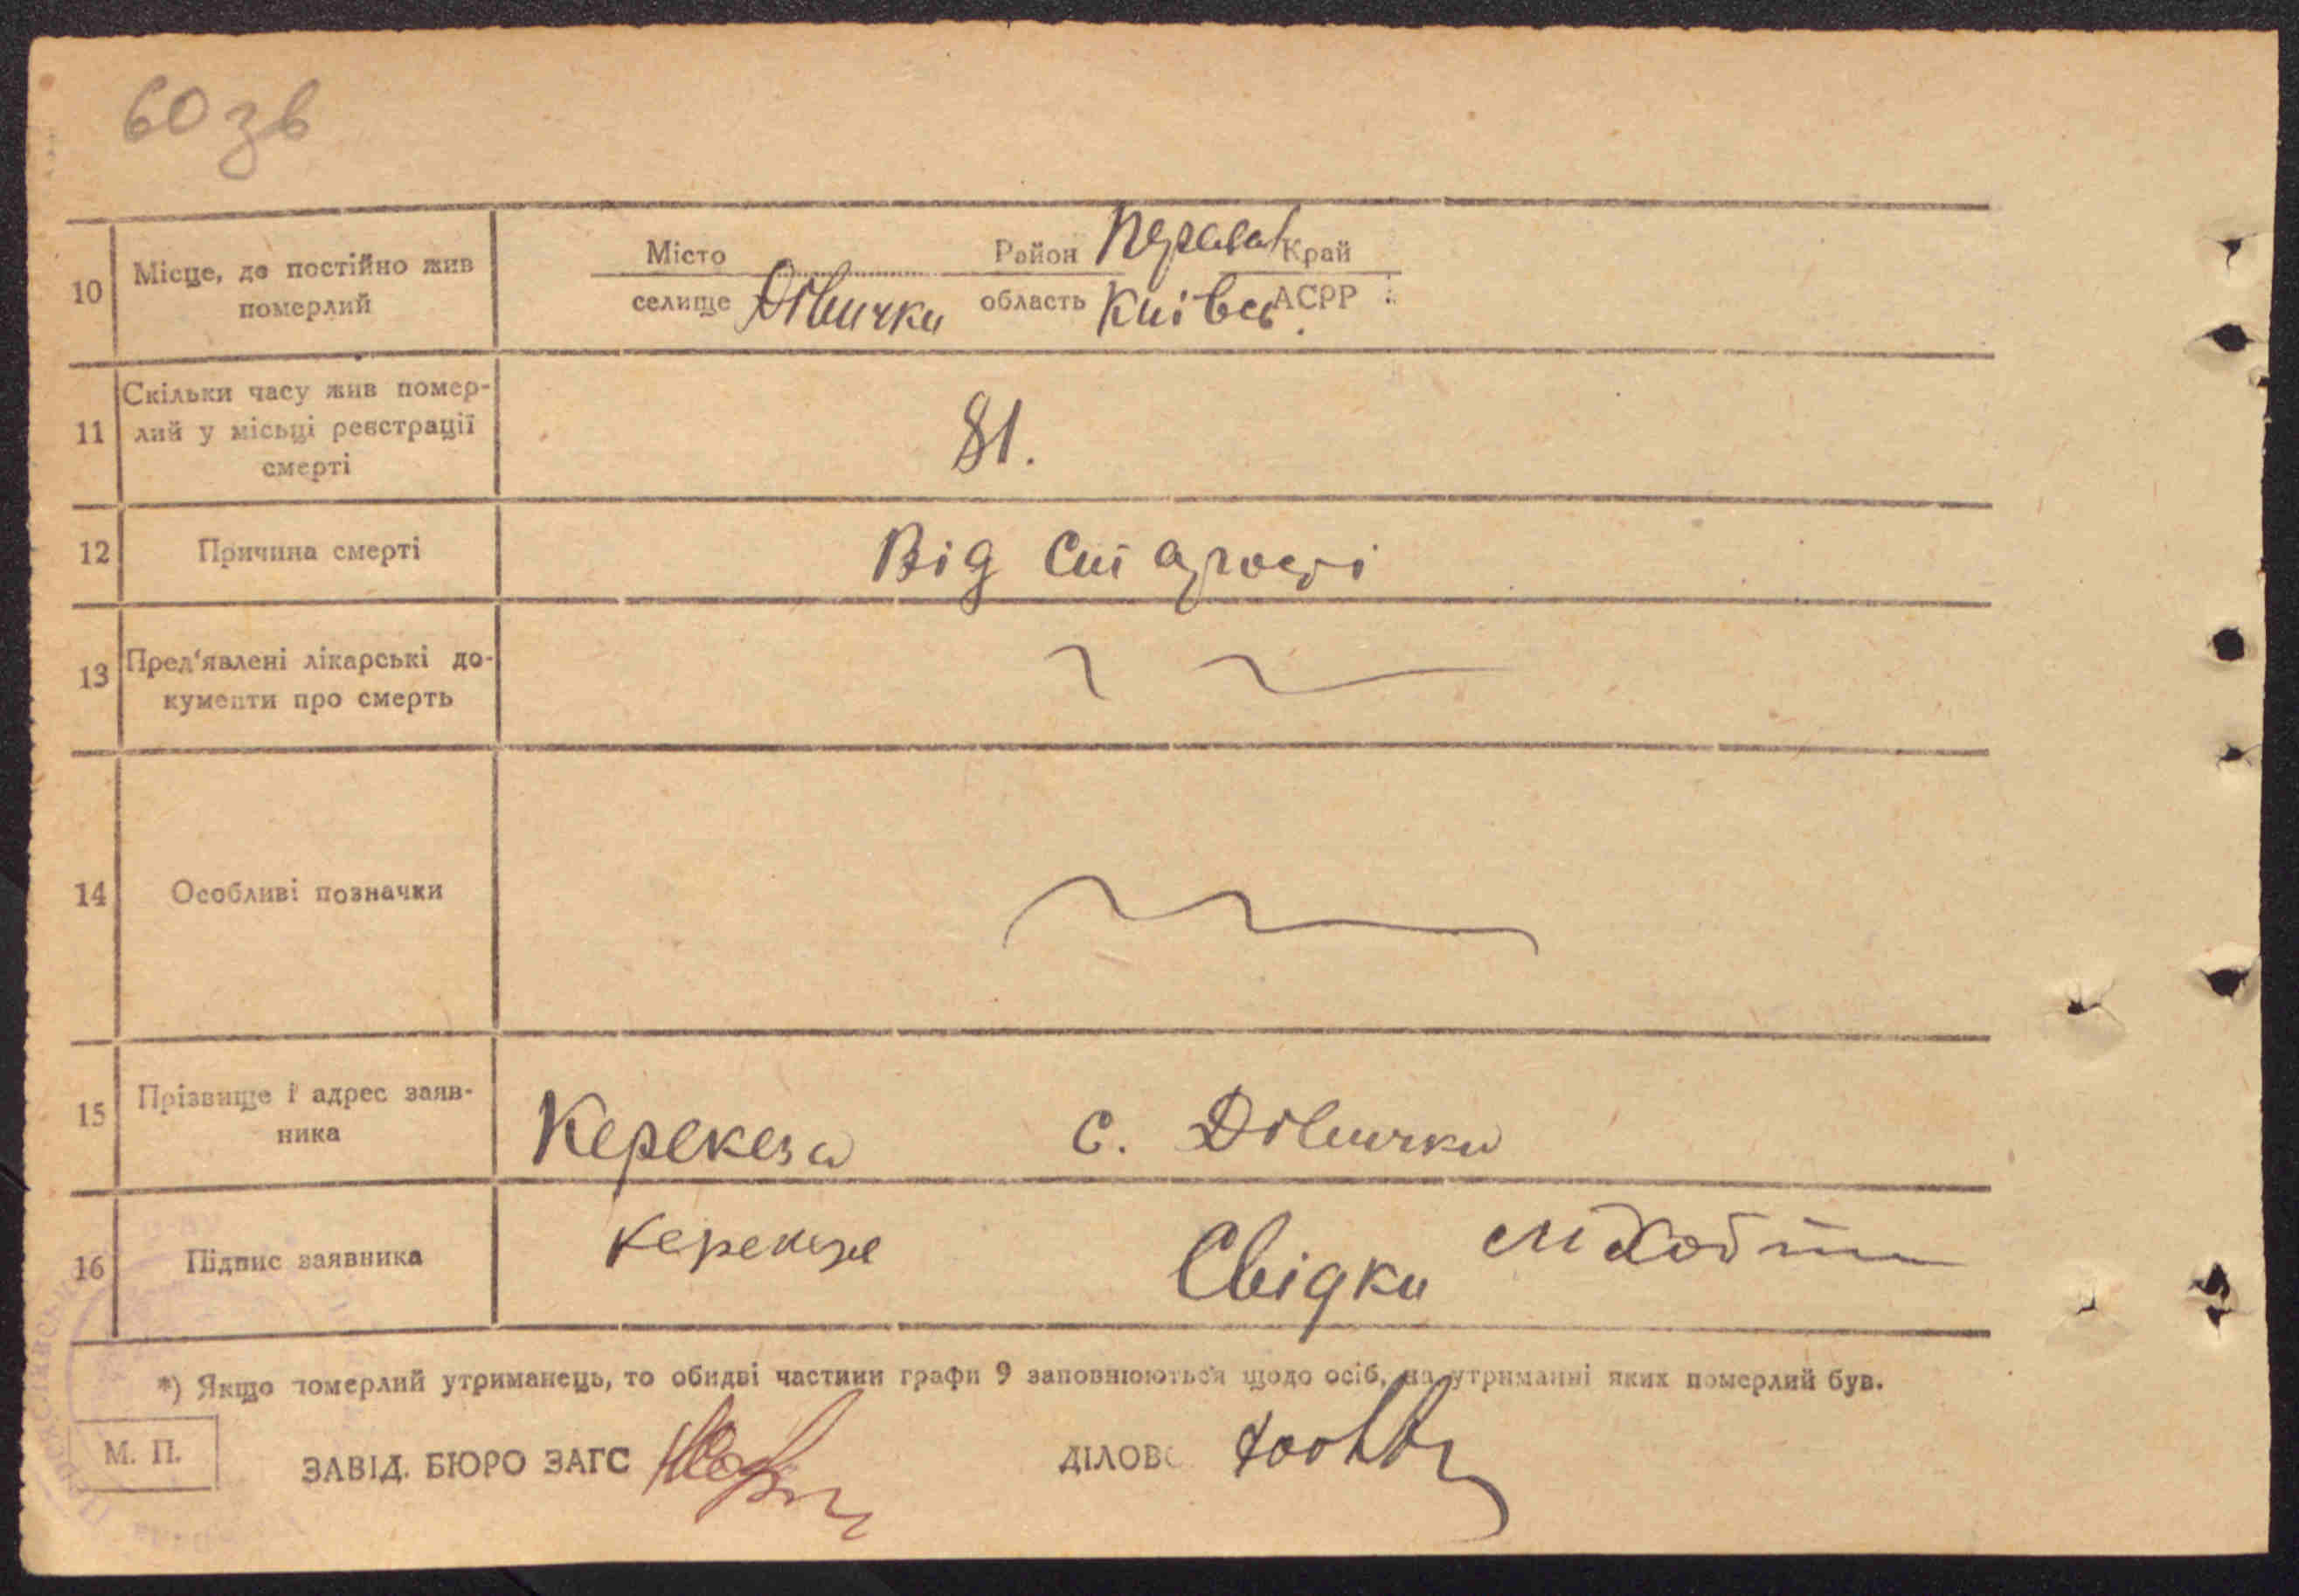 60 зв
10 Місце, де постійно жив померлий
Місто Район Переяслав Край
селище Дівички область Київськ. АСРР
11 Скільки часу жив помер-
лий у місьці реєстрації
смерті
81.
12 Причина смерті Від старості
13 Пред'явлені лікарські до-
кументи про смерть
14 Особливі позначки
15 Прізвище і адрес заяв-
ника
Керекеза с. Дівички
16 Підпис заявника Керекеза Свідки
*) Якщо померлий утриманець, то обидві частини графи 9 заповнюються щодо осіб, на утриманні яких померлий був.
М. П. ЗАВІД. БЮРО ЗАГС ДІЛОВ